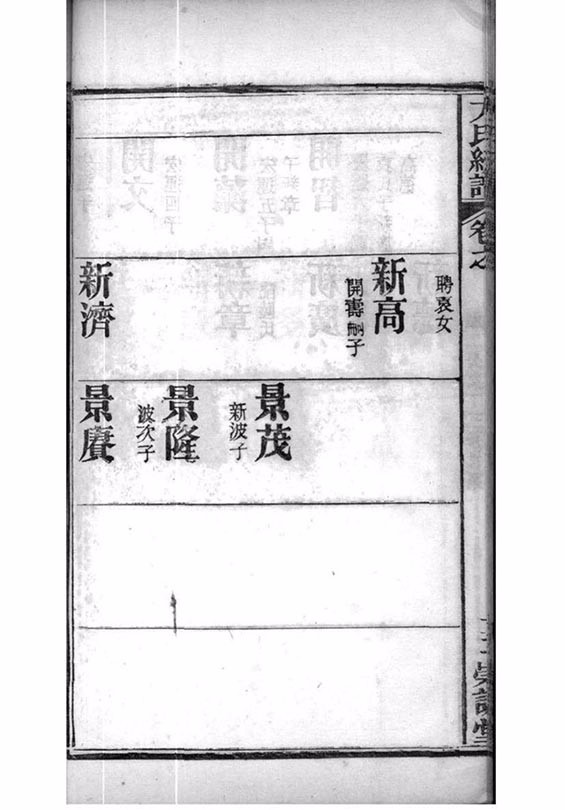 氏續譜 卷之
聘袁女
新高
開壽嗣子
新濟
景茂
新波子
景隆
波次子
景賡